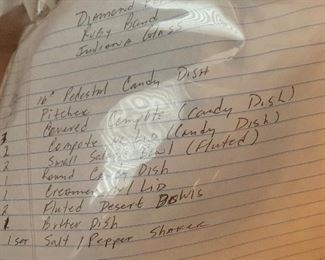 Diamond
Ruby Band
Indiana Glass
10" Pedestal Candy Dish
Pitcher
3 Covered Compote (Candy Dish)
2 Compote w/ Lid (Candy Dish)
2 Small Salad Bowl (Fluted)
1 Round Candy Dish
1 Creamer w/ Lid
2 Fluted Desert Bowls
1 Butter Dish
1 set Salt / Pepper Shaker